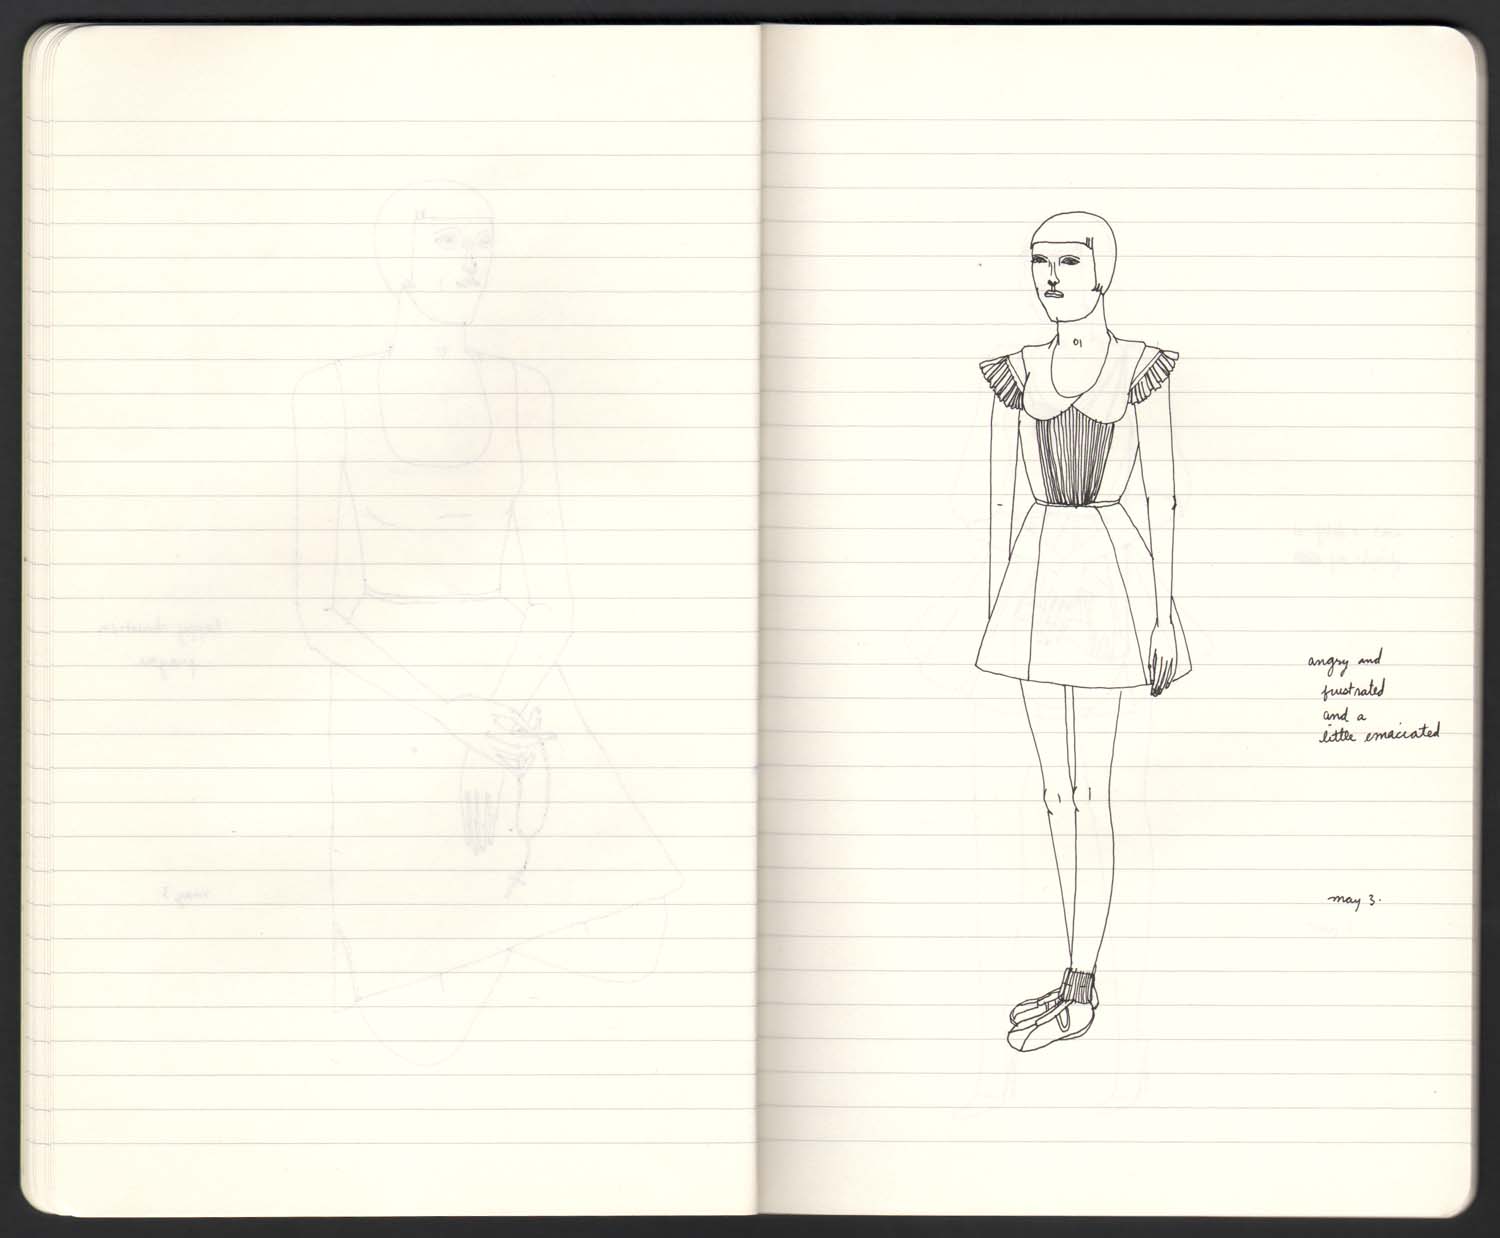 angry and
frustrated
and a
little emaciated
may 3.
may 3